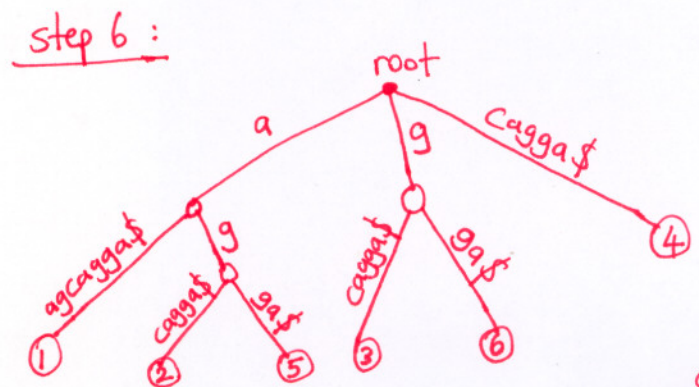 step 6 :
root
a
g
cagga$
agcagga$
g
cagga$
ga$
cagga$
ga$
1
2
5
3
6
4